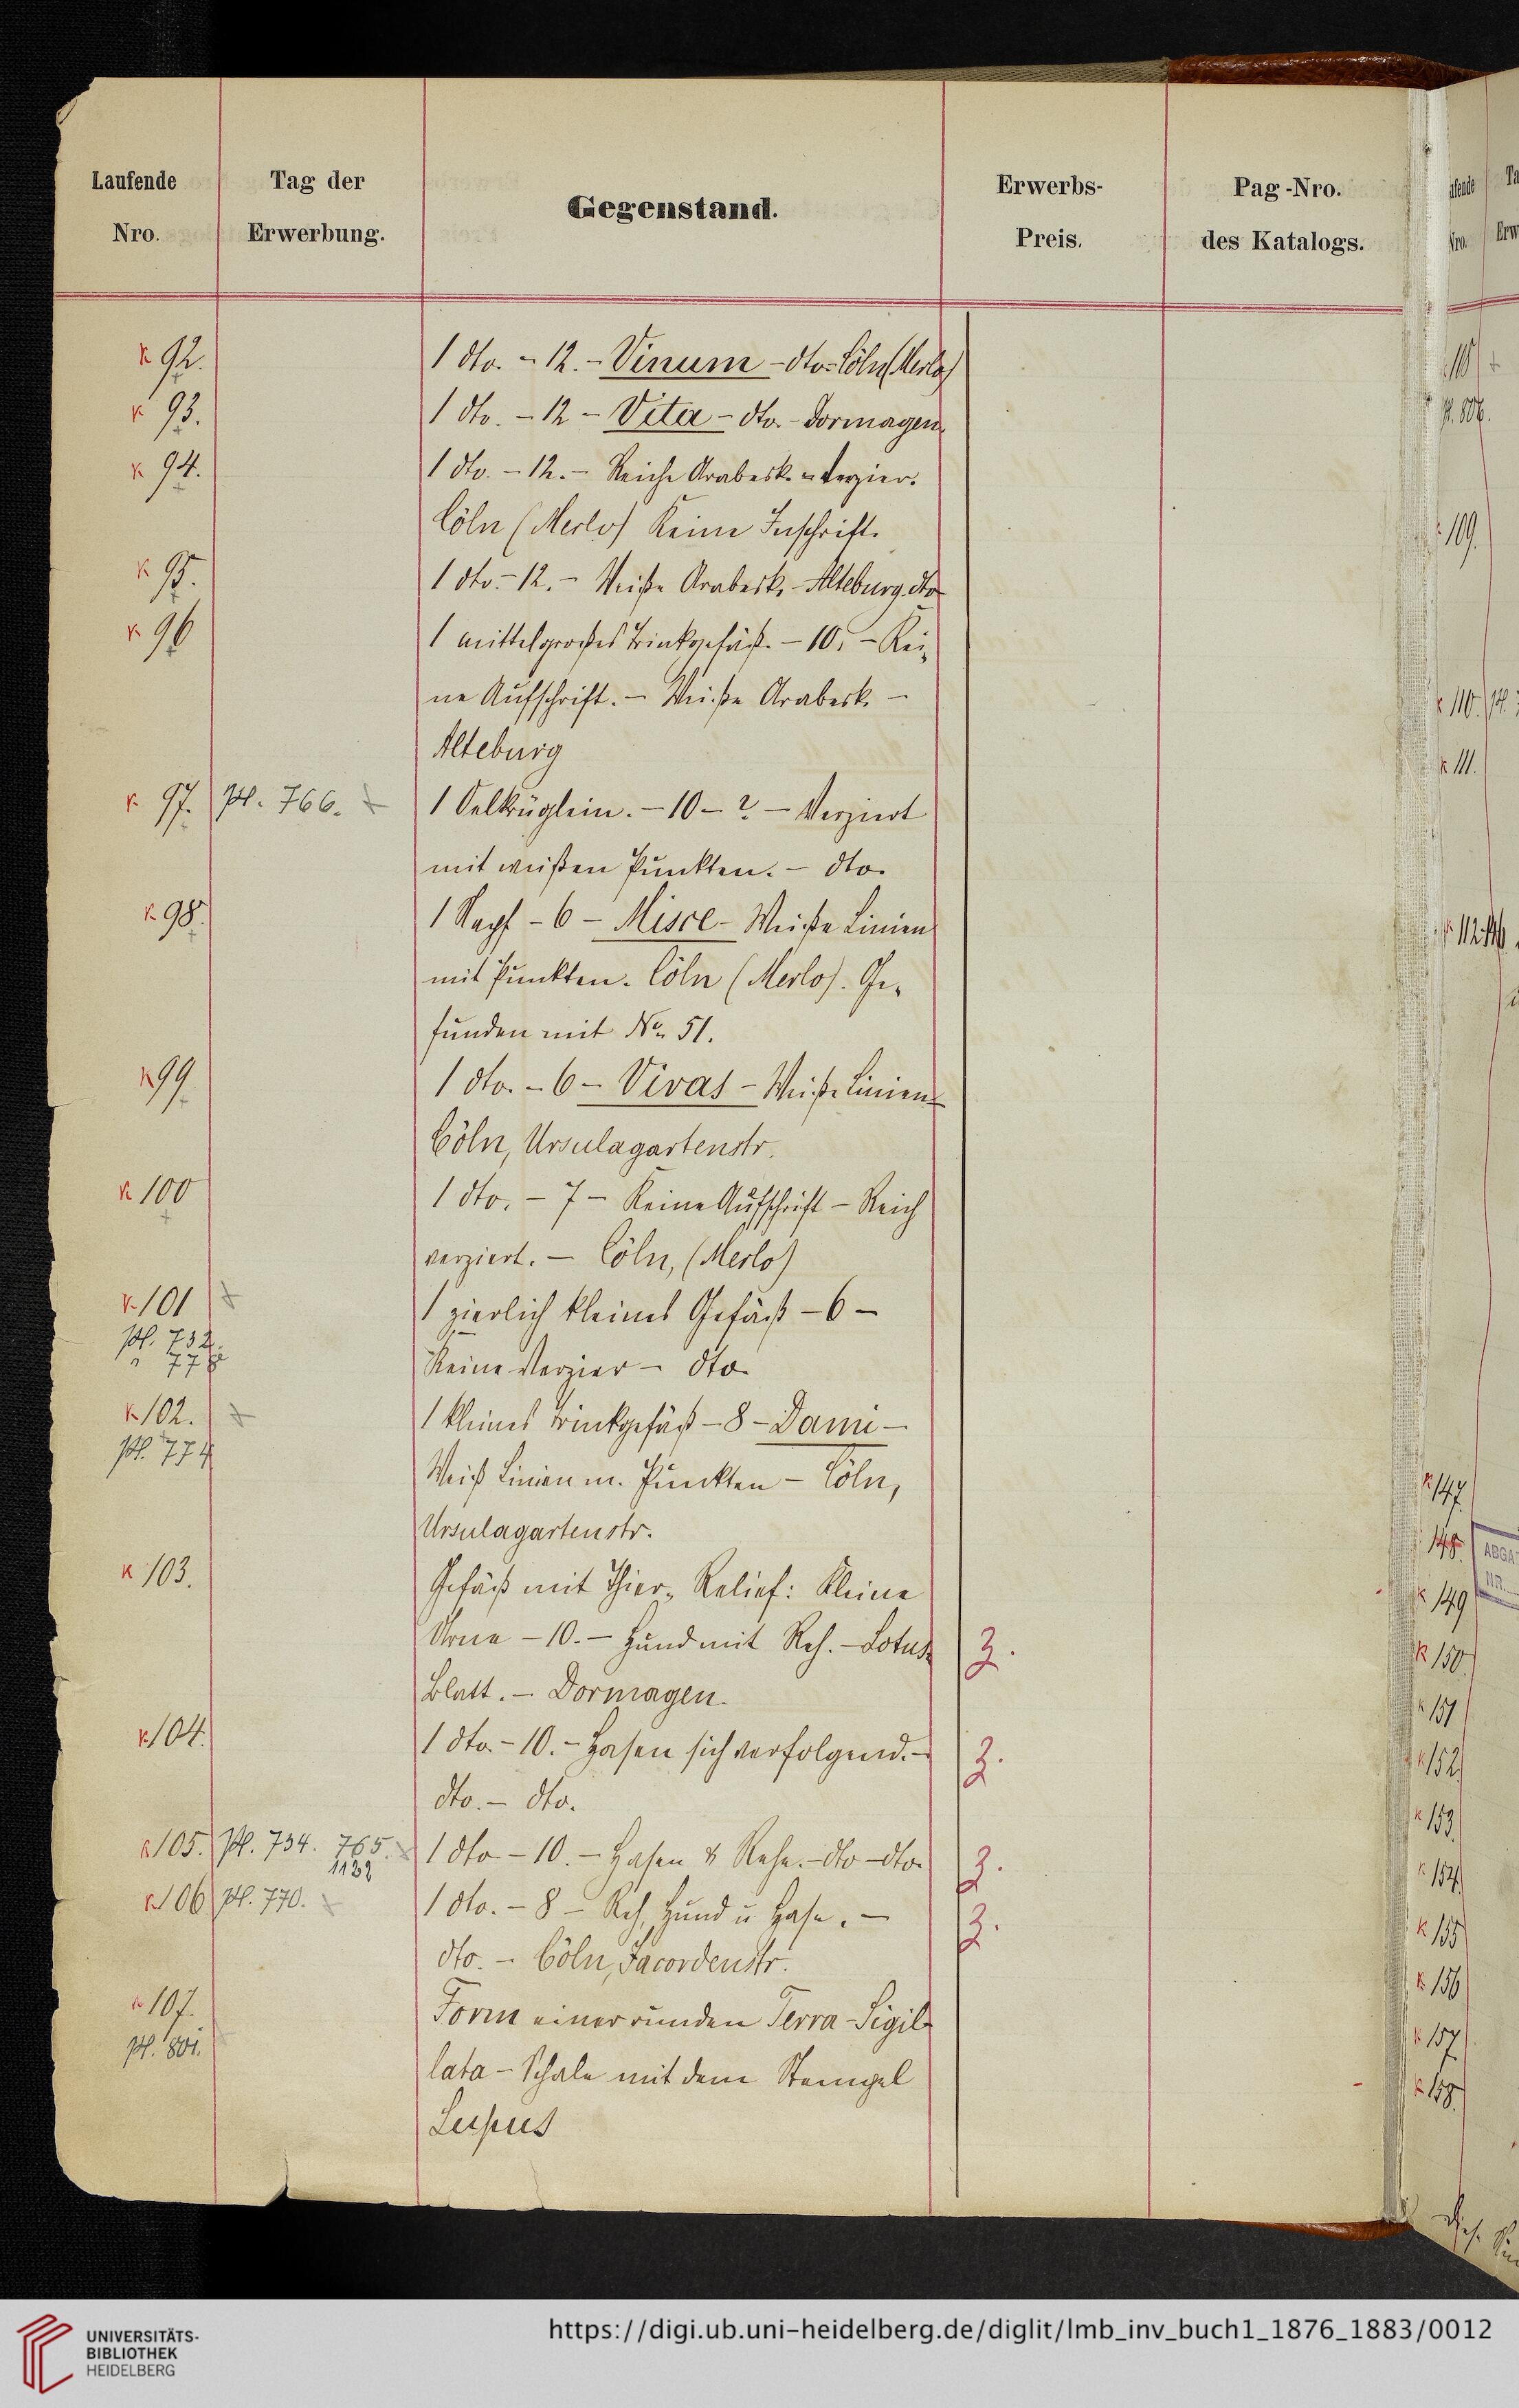 Laufende Nro.
Tag der Erwerbung.
Gegenstand.
Erwerbs-Preis.
Pag-Nro. des Katalogs.
K 92. 1 dto. - 12. - Vinum - dto - Cöln (Merlo)
K 93. 1 dto. - 12 - Vita - dto. - Dormagen.
K 94. 1 dto. - 12. - Reiche Arabesk. - verzier.
Cöln (Merlo) Keine Inschrift.
K 95. 1 dto. - 12. - Weiße Arabesk. - Alteburg. dto
K 96 1 mittelgroßes Trinkgefäß. - 10. - Kei-
ne Aufschrift. - Weiße Arabesk. -
Alteburg
K 97. Pl. 766. 1 Oelkrüglein. - 10 - ? - Verziert
mit weißen Punkten. - dto.
K 98. 1 Napf - 6 - Misce - Weiße Linien
mit Punkten. Cöln (Merlo). Ge-
funden mit No. 51.
K 99. 1 dto. - 6 - Vivas - Weiße Linien -
Cöln, Ursulagartenstr.
K 100 1 dto. - 7 - Keine Aufschrift - Reich
verziert. - Cöln, (Merlo)
K 101 1 zierlich kleines Gefäß - 6 -
Pl. 732.
" 778
Keine Verzier - dto.
K 102. 1 kleines Trinkgefäß - 8 - Dami -
Pl. 774
Weiß Linien m. Punkten - Cöln,
Ursulagartenstr.
K 103. Gefäß mit Thier-Relief: Kleine
Urne - 10. - Hund mit Reh. - Lotus- 3.
Blatt. - Dormagen.
K 104. 1 dto. - 10. - Hasen sich verfolgend. - 3.
dto. - dto.
K 105. Pl. 734. 765. 1 dto - 10. - Hasen & Rehe. - dto - dto. 3.
1132
K 106 Pl. 770. 1 dto. - 8 - Reh, Hund u Hase. - 3.
dto. - Cöln, Jacordenstr.
K 107. Form einer runden Terra-Sigil-
Pl. 801.
lata - Schale mit dem Stempel
Lupus
109.
K 110.
K 111.
K 147.
148.
K 149
K 150.
K 151
K 152
K 153.
K 154.
K 155
K 156
K 157
K 158.
UNIVERSITÄTS-
BIBLIOTHEK
HEIDELBERG
https://digi.ub.uni-heidelberg.de/diglit/lmb_inv_buch1_1876_1883/0012